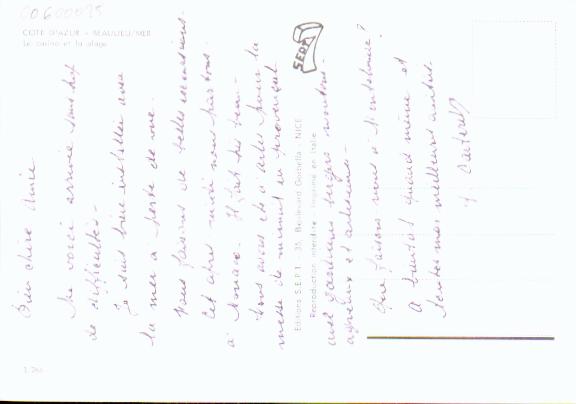 00600025
COTE D'AZUR - BEAULIEU/MER
Le casino et la plage
Bien chère Amie
Me voici arrivée sans trop
de difficultés -
Je suis bien installée avec
la mer à perte de vue.
Nous faisons de belles excursions.
Cet après midi nous partons
à Monaco. Il fait très beau -
Nous avons été à Arles pour la
messe de minuit en provençal
avec
bergers moutons
agneaux et
Que faisons nous à
A bientôt quand même et
toutes mes meilleures amitiés.
Editions S.E.P.T. - 35, Boulevard Gorbella - NICE
Reproduction interdite Imprimé en Italie
SEPT